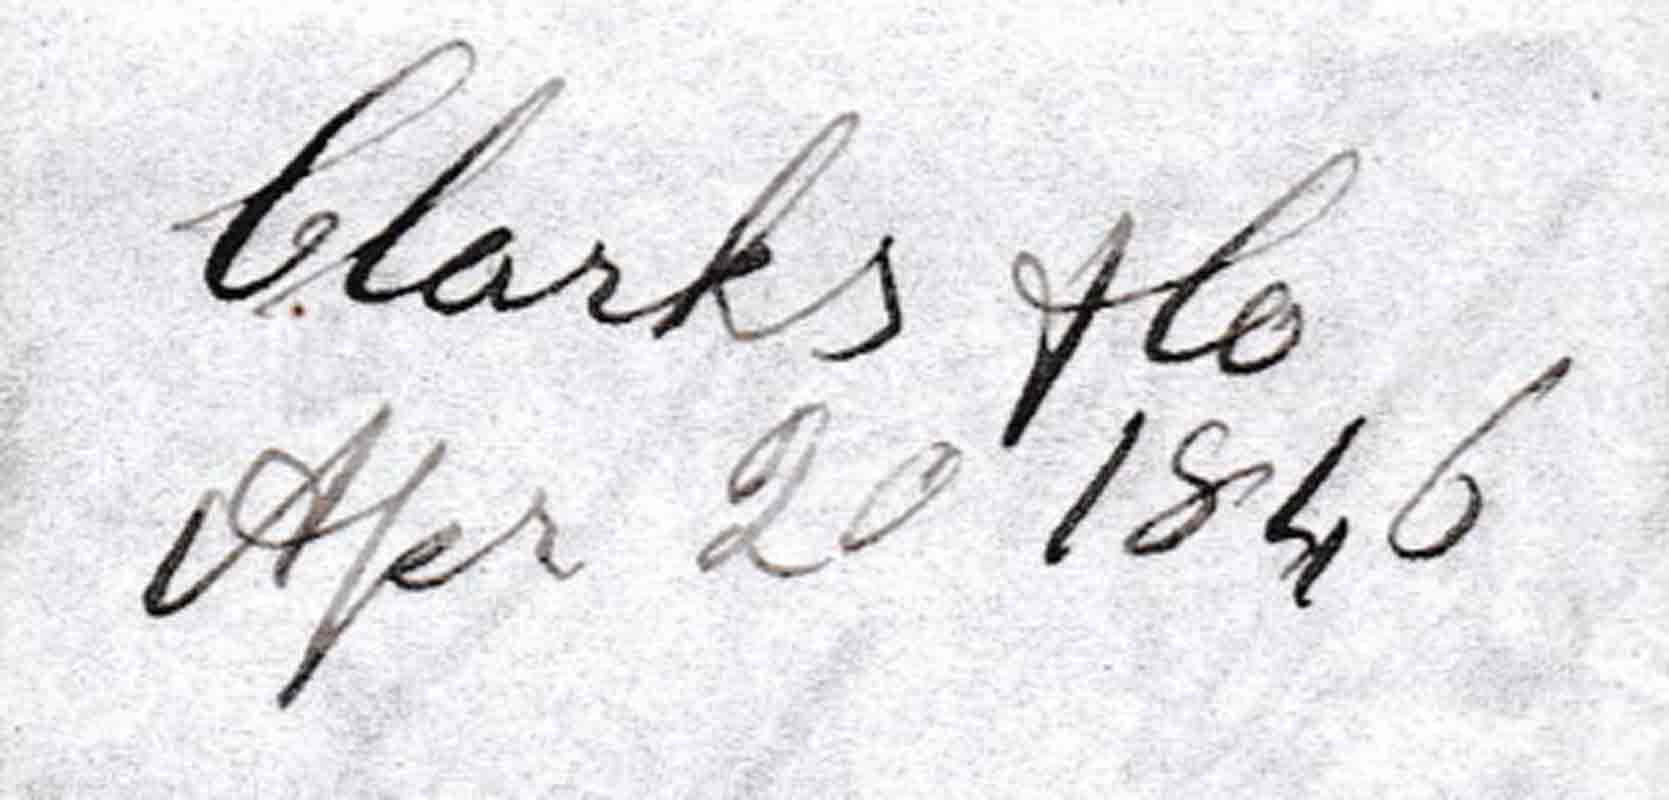 Clarks & Co
Apr 20 1846